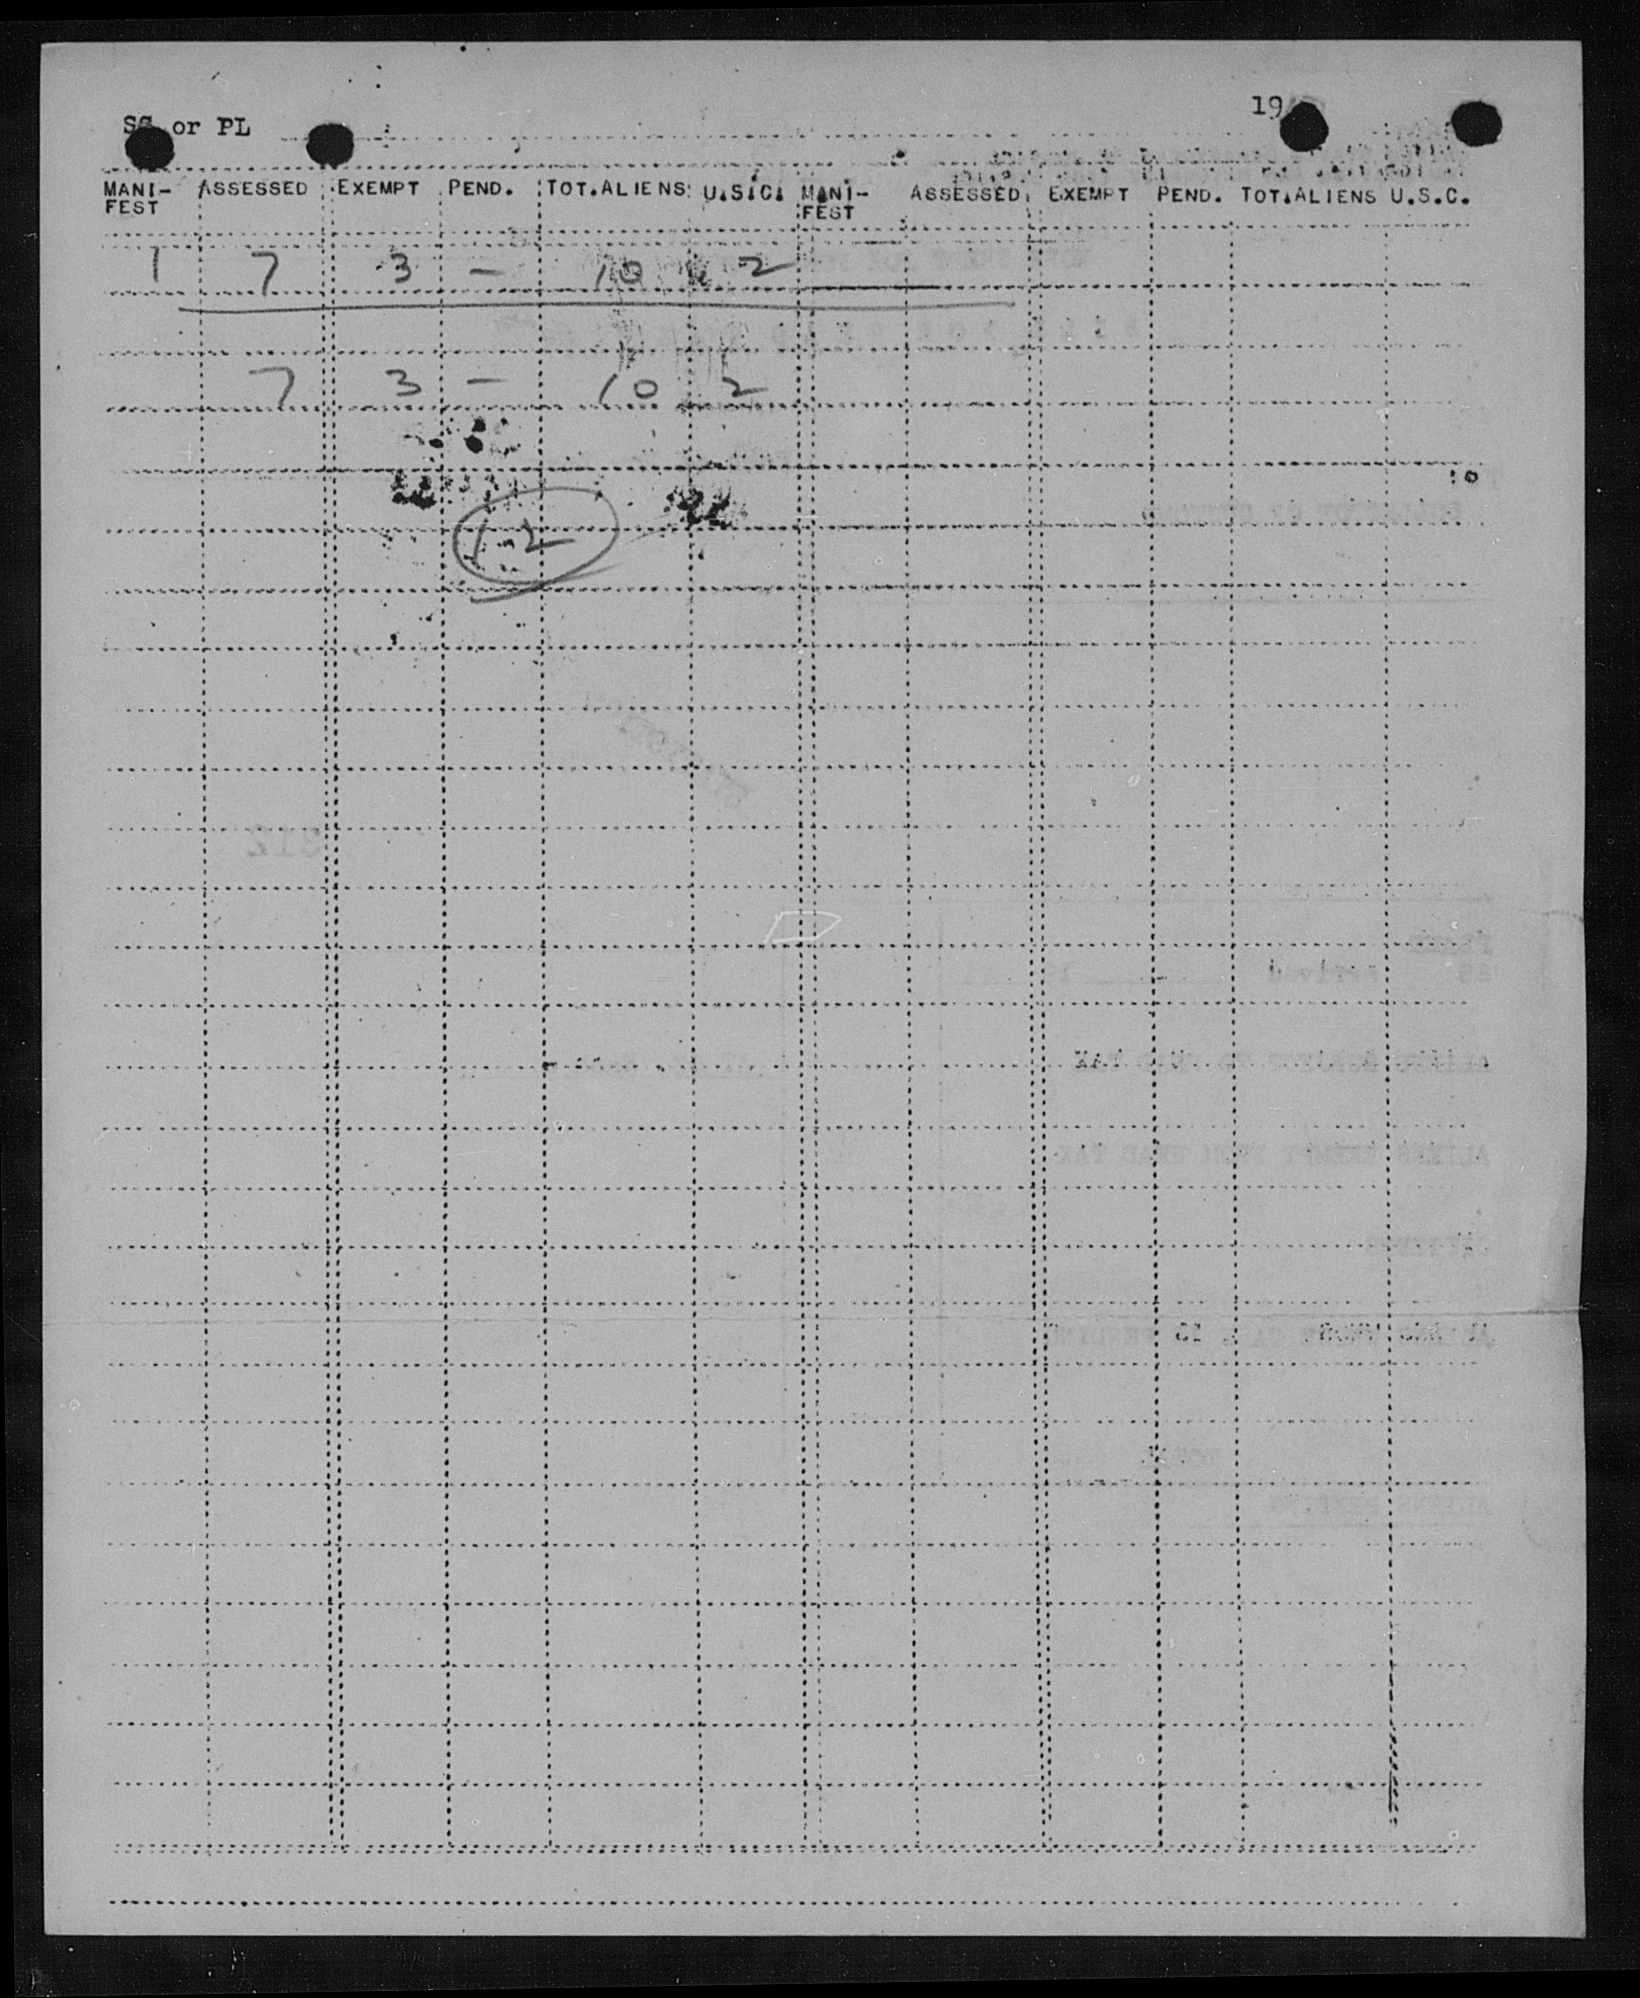 SS or PL 19
MANI-FEST ASSESSED EXEMPT PEND. TOT.ALIENS U.S.C. MANI-FEST ASSESSED EXEMPT PEND. TOT.ALIENS U.S.C.
1 7 3 - 10 2
7 3 - 10 2
1-2